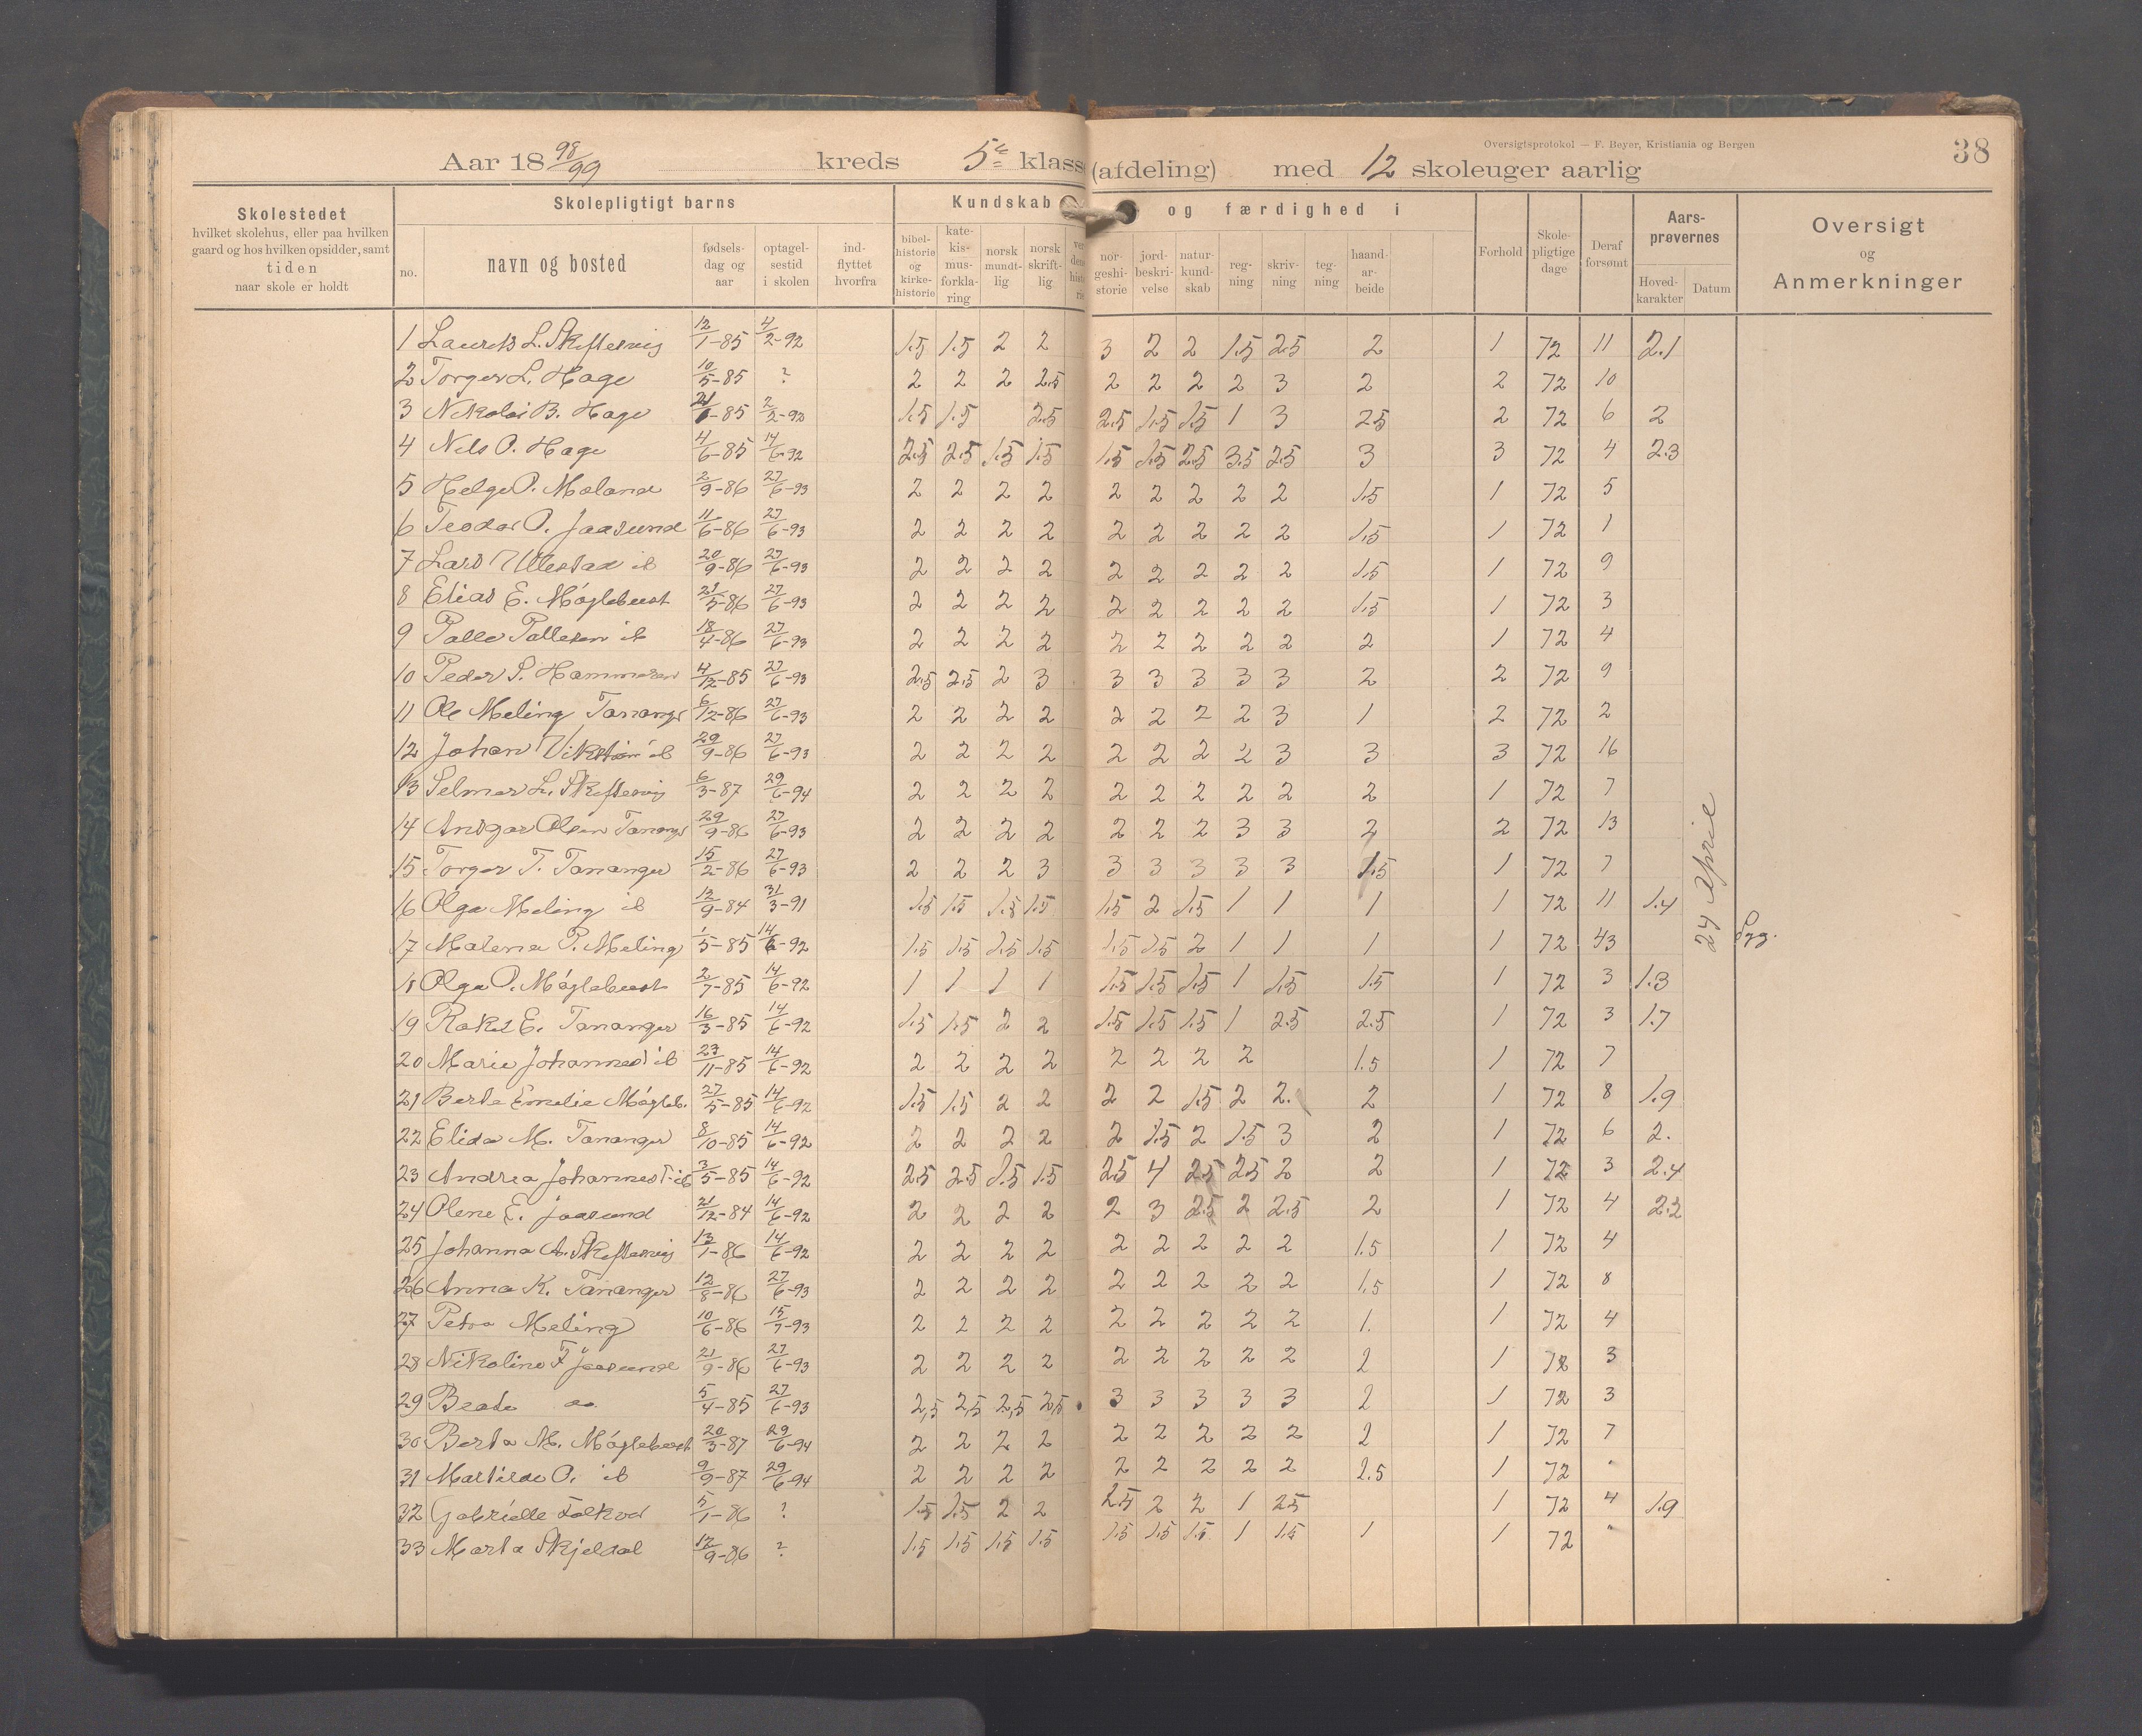 Oversigtsprotokol — F. Beyer, Kristiania og Bergen
38
Aar 18 98/99 kreds 5te klasse (afdeling) med 12 skoleuger aarlig
Skolestedet hvilket skolehus, eller paa hvilken gaard og hos hvilken opsidder, samt tiden naar skole er holdt
Skolepligtigt barns
no. navn og bosted fødselsdag og aar optagelsestid i skolen indflyttet hvorfra
Kundskab og færdighed i
bibelhistorie og kirkehistorie katekismusforklaring norsk mundtlig norsk skriftlig norgeshistorie jordbeskrivelse naturkundskab regning skrivning tegning haandarbeide
Forhold Skolepligtige dage Deraf forsømt Aarsprøvernes Hovedkarakter Datum
Oversigt og Anmerkninger
1 Laurits L. Skiftesvig 12/1-85 4/2-92 1.5 1.5 2 2 3 2 2 1.5 2.5 2 1 72 11 2.1
2 Torger L. Hage 10/5-85 ? 2 2 2 2.5 2 2 2 2 3 2 2 72 10
3 Nikolai B. Hage 21/6-85 2/2-92 1.5 1.5 2.5 2.5 1.5 1.5 1 3 2.5 2 72 6 2
4 Nils O. Hage 4/6-85 14/6-92 2.5 2.5 1.5 1.5 1.5 1.5 2.5 3.5 2.5 3 3 72 4 2.3
5 Helge P. Meland 2/9-86 27/6-93 2 2 2 2 2 2 2 2 2 1.5 1 72 5
6 Teodor O. Jaasund 11/6-86 27/6-93 2 2 2 2 2 2 2 2 2 1.5 1 72 1
7 Lars Ullestad ib 20/9-86 27/6-93 2 2 2 2 2 2 2 2 2 1.5 1 72 9
8 Elias E. Møglebust 21/5-86 27/6-93 2 2 2 2 2 2 2 2 2 1.5 1 72 3
9 Palle Pallesen ib 18/4-86 27/6-93 2 2 2 2 2 2 2 2 2 2 1 72 4
10 Peder P. Hammeren 4/12-85 27/6-93 2.5 2.5 2 3 3 3 3 3 3 2 2 72 9
11 Ole Meling Tananger 6/12-86 27/6-93 2 2 2 2 2 2 2 2 3 1 2 72 2
12 Johan ib 29/9-86 27/6-93 2 2 2 2 2 2 2 2 3 3 3 72 16
13 Selmer L. Skiftesvig 6/3-87 29/6-94 2 2 2 2 2 2 2 2 2 2 1 72 7
14 Ansgar Olsen Tananger 29/9-86 27/6-93 2 2 2 2 2 2 2 3 3 2 2 72 13
15 Torger T. Tananger 15/2-86 27/6-93 2 2 2 3 3 3 3 3 3 1.5 1 72 7
16 Olga Meling ib 12/9-84 31/3-91 1.5 1.5 1.5 1.5 1.5 2 1.5 1 1 1 1 72 11 1.4
17 Malena P. Meling 1/5-85 14/6-92 1.5 1.5 1.5 1.5 1.5 1.5 2 1 1 1 1 72 43 Syg.
24 April
18 Olga O. Møglebust 2/7-85 14/6-92 1 1 1 1 1.5 1.5 1.5 1 1.5 1.5 1 72 3 1.3
19 Rakel E. Tananger 16/3-85 14/6-92 1.5 1.5 2 2 1.5 1.5 1.5 1 2.5 2.5 1 72 3 1.7
20 Marie Johannes ib 23/11-85 14/6-92 2 2 2 2 2 2 2 2 1.5 1 72 7
21 Berta Emelie Mógleb. 27/5-85 14/6-92 1.5 1.5 2 2 2 2 1.5 2 2. 2 1 72 8 1.9
22 Elida M. Tananger 8/10-85 14/6-92 2 2 2 2 2 1.5 2 1.5 3 2 1 72 6 2.
23 Andrea Johannes T. ib 3/5-85 14/6-92 2.5 2.5 1.5 1.5 2.5 4 2.5 2.5 2 2 1 72 3 2.4
24 Olene E. Jaasund 21/12-84 14/6-92 2 2 2 2 2 3 2.5 2 2.5 2 1 72 4 2.2
25 Johanna A. Skiftesvig 13/1-86 14/6-92 2 2 2 2 2 2 2 2 2 1.5 1 72 4
26 Anna K. Tananger 12/8-86 27/6-93 2 2 2 2 2 2 2 2 2 1.5 1 72 8
27 Petra Meling 10/6-86 15/7-93 2 2 2 2 2 2 2 2 2 1. 1 72 4
28 Nikoline F Jaasund 21/9-86 27/6-93 2 2 2 2 2 2 2 2 2 2 1 72 3
29 Beate 5/4-85 27/6-93 2,5 2,5 2,5 2,5 3 3 3 3 3 2 1 72 3
30 Berta M. Móglebust 20/3-87 29/6-94 2 2 2 2 2 2 2 2 2 2 1 72 7
31 Martilde O. ib 9/9-87 29/6-94 2 2 2 2 2 2 2 2 2 2.5 1 72 "
32 Gabrielle 5/1-86 ? 1.5 1.5 2 2 2.5 2 2 1 2.5 1 72 4 1.9
33 Marta Skjeldal 12/9-86 ? 1.5 1.5 1.5 1.5 1.5 1.5 1.5 1 1.5 1 1 72 "